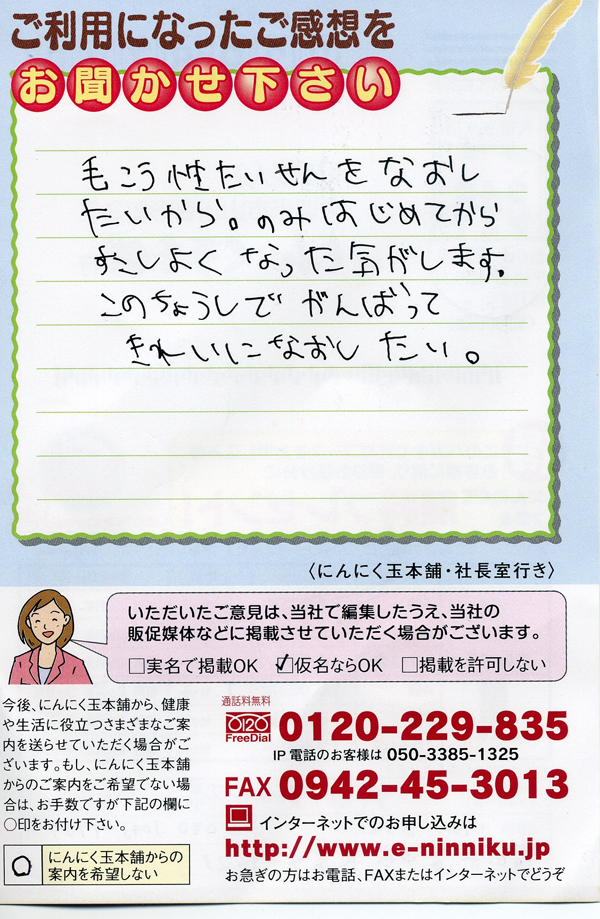 ご利用になったご感想を
お聞かせ下さい
毛こう性たいせんをなおし
たいから。のみはじめてから
すこしよくなった気がします。
このちょうしでがんばって
きれいになおしたい。
〈にんにく玉本舗・社長室行き〉
いただいたご意見は、当社で編集したうえ、当社の
販促媒体などに掲載させていただく場合がございます。
□実名で掲載OK ☑仮名ならOK □掲載を許可しない
今後、にんにく玉本舗から、健康
や生活に役立つさまざまなご案
内を送らせていただく場合がござ
います。もし、にんにく玉本舗
からのご案内をご希望でない場
合は、お手数ですが下記の欄に
○印をお付け下さい。
○ にんにく玉本舗からの
案内を希望しない
通話料無料
0120
FreeDial
0120-229-835
IP電話のお客様は 050-3385-1325
FAX 0942-45-3013
インターネットでのお申し込みは
http://www.e-ninniku.jp
お急ぎの方はお電話、FAXまたはインターネットでどうぞ